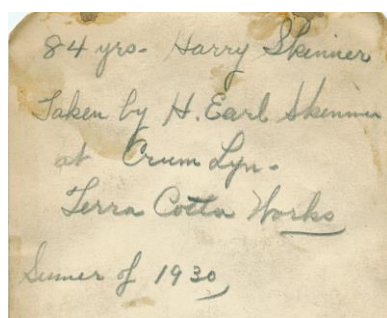 84 yrs. Harry Skinner
Taken by H. Earl Skinner
at Crum Lyn.
Terra Cotta Works
Sumer of 1930